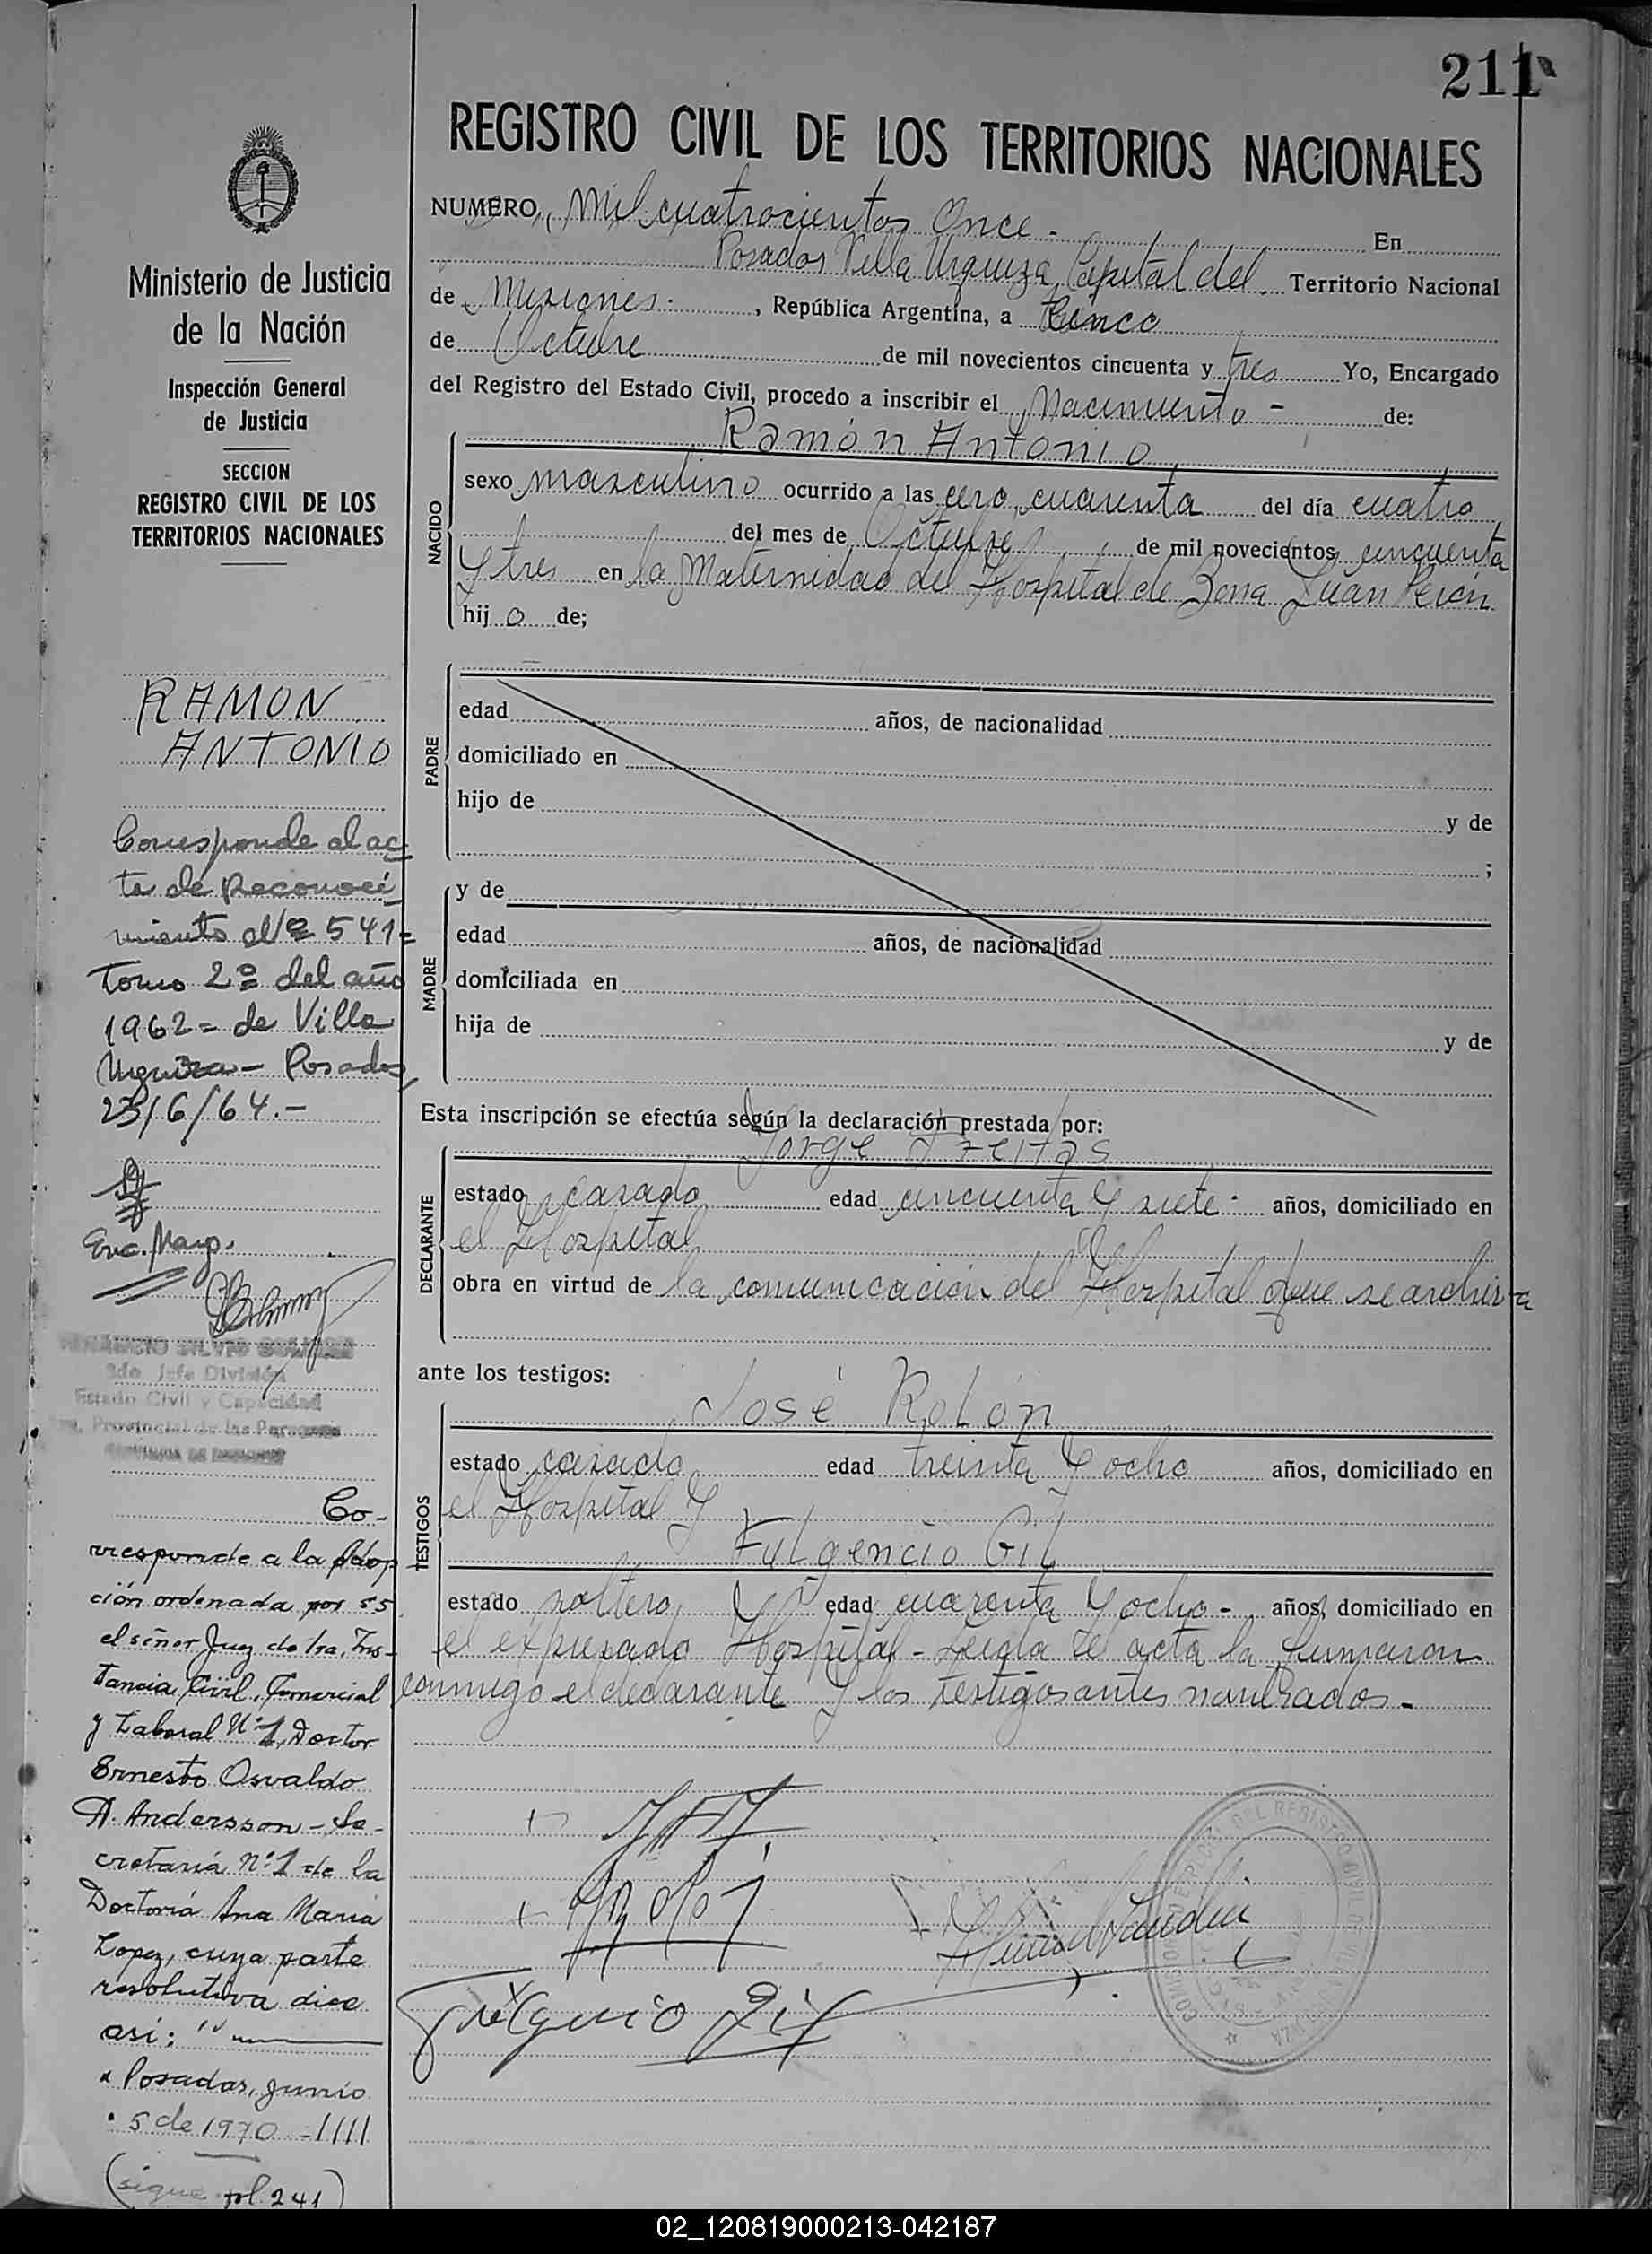 211
REGISTRO CIVIL DE LOS TERRITORIOS NACIONALES
NUMERO Mil cuatrocientos Once - En
Posadas Villa Urquiza Capital del Territorio Nacional
de Misiones , República Argentina, a Cinco
de Octubre de mil novecientos cincuenta y tres Yo, Encargado
del Registro del Estado Civil, procedo a inscribir el Nacimiento - de:
Ramón Antonio
NACIDO
sexo masculino ocurrido a las cero cuarenta del día cuatro
del mes de Octubre de mil novecientos cincuenta
y tres en la Maternidad del Hospital de Zona Juan Perón
hij o de;
PADRE
edad años, de nacionalidad
domiciliado en
hijo de y de
;
MADRE
y de
edad años, de nacionalidad
domiciliada en
hija de y de
Esta inscripción se efectúa según la declaración prestada por:
Jorge Freitas
DECLARANTE
estado casado edad cincuenta y siete - años, domiciliado en
el Hospital
obra en virtud de la comunicación del Hospital que se archiva
ante los testigos:
José Rolón
TESTIGOS
estado casado edad treinta y ocho años, domiciliado en
el Hospital y
Fulgencio Gil
estado soltero edad cuarenta y ocho - años, domiciliado en
el expresado Hospital - Leida el acta la firmaron
conmigo el declarante y los testigos antes nombrados -
Fulgencio Gil
Ministerio de Justicia
de la Nación
Inspección General
de Justicia
SECCION
REGISTRO CIVIL DE LOS
TERRITORIOS NACIONALES
RAMON
ANTONIO
Corresponde al ac
ta de Reconoci
miento Nº 541=
Tomo 2º del año
1962= de Villa
Urquiza - Posadas,
23/6/64.-
Enc. Marg.
2do Jefe División
Estado Civil y Capacidad
Provincial de las Personas
Co-
rresponde a la Adop
ción ordenada por SS
el señor Juez de 1ra. Ins-
tancia Civil, Comercial
y Laboral Nº 1, Doctor
Ernesto Osvaldo
A. Andersson - Se-
cretaría Nº 1 de la
Doctora Ana María
Lopez, cuya parte
resolutiva dice
así: "
" Posadas, junio
" 5 de 1970 -////
(sigue fl. 241)
02_120819000213-042187